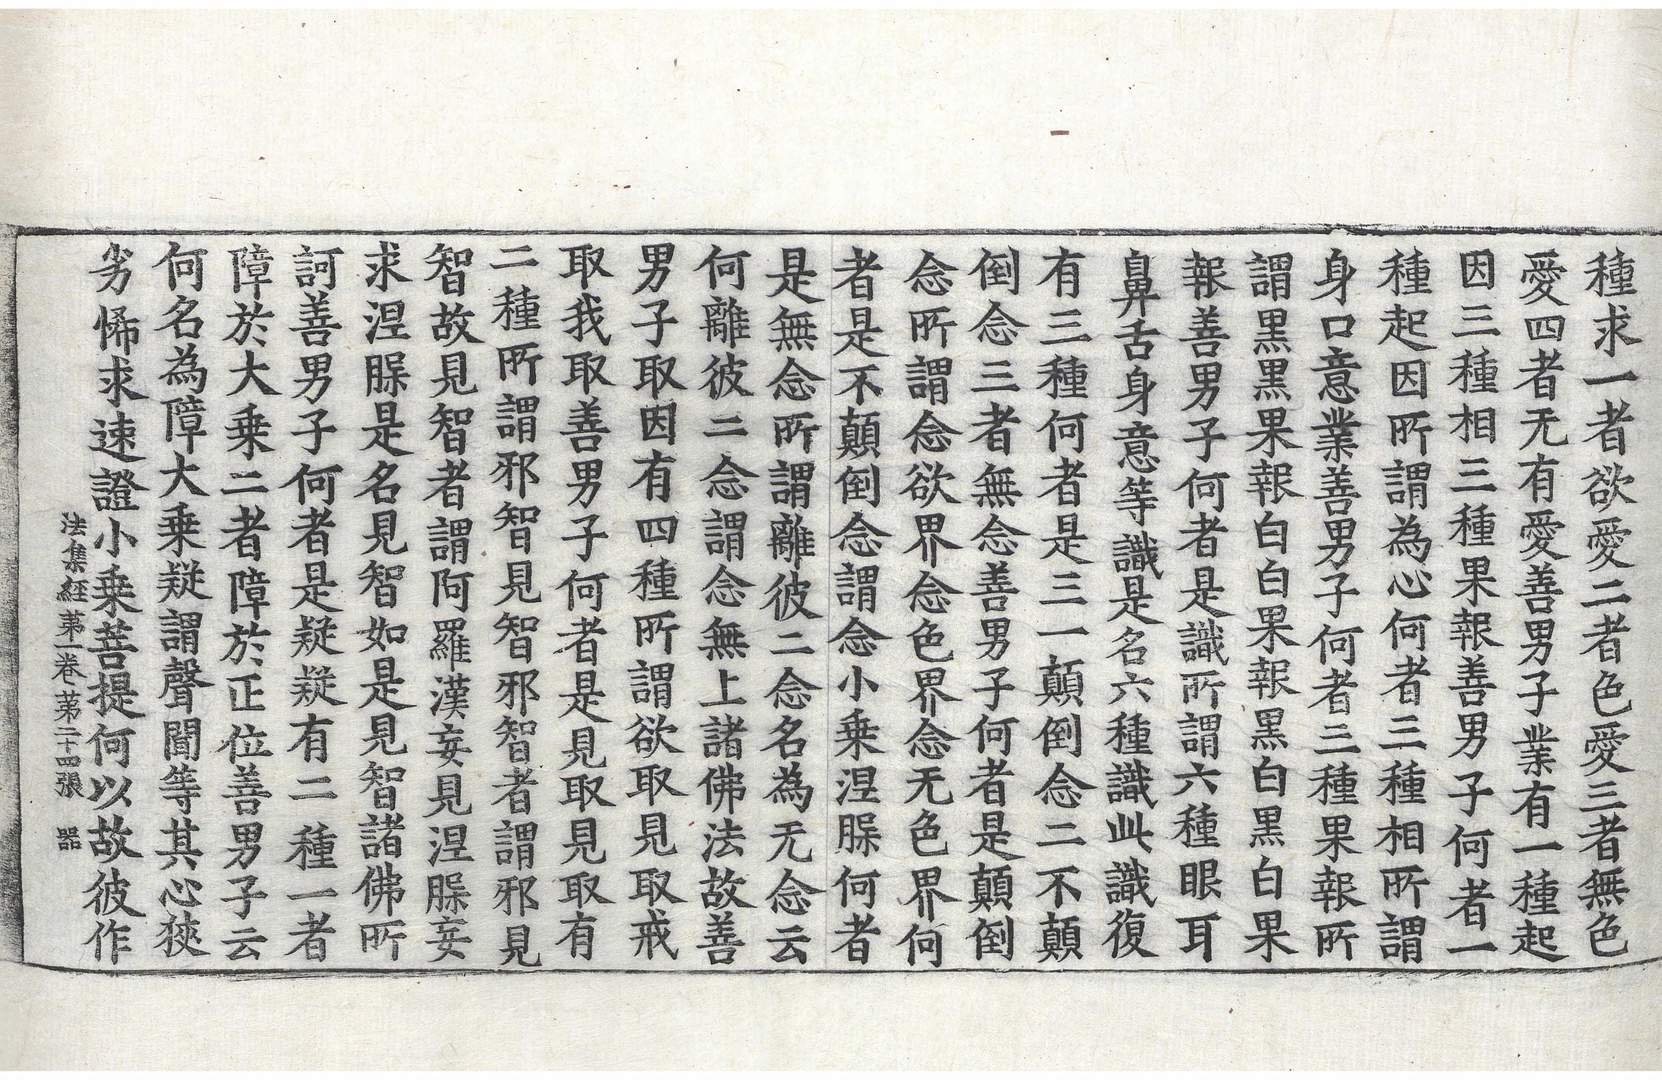 種求一者欲愛二者色愛三者無色
愛四者无有愛善男子業有一種起
因三種相三種果報善男子何者一
種起因所謂為心何者三種相所謂
身口意業善男子何者三種果報所
謂黑黑果報白白果報黑白黑白果
報善男子何者是識所謂六種眼耳
鼻舌身意等識是名六種識此識復
有三種何者是三一顛倒念二不顛
倒念三者無念善男子何者是顛倒
念所謂念欲界念色界念无色界何
者是不顛倒念謂念小乗涅脲何者
是無念所謂離彼二念名為无念云
何離彼二念謂念無上諸佛法故善
男子取因有四種所謂欲取見取戒
取我取善男子何者是見取見取有
二種所謂邪智見智邪智者謂邪見
智故見智者謂阿羅漢妄見涅脲妄
求涅脲是名見智如是見智諸佛所
訶善男子何者是疑疑有二種一者
障於大乗二者障於正位善男子云
何名為障大乗疑謂聲聞等其心狹
劣悕求速證小乗菩提何以故彼作
法集経苐一卷苐二十四張 器